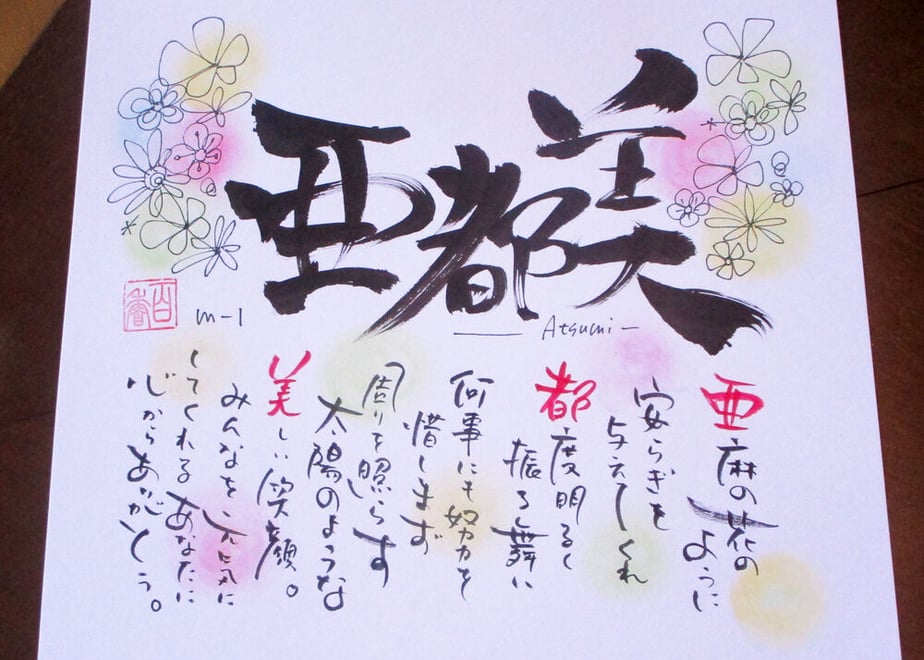 亜都美
— Atsumi —
百香
m-1
亜麻の花の
ように
安らぎを
与えてくれ
都度明るく
振る舞い
何事にも努力を
惜しまず
周りを照らす
太陽のような
美しい笑顔。
みんなを元気に
してくれるあなたに
心からありがとう。